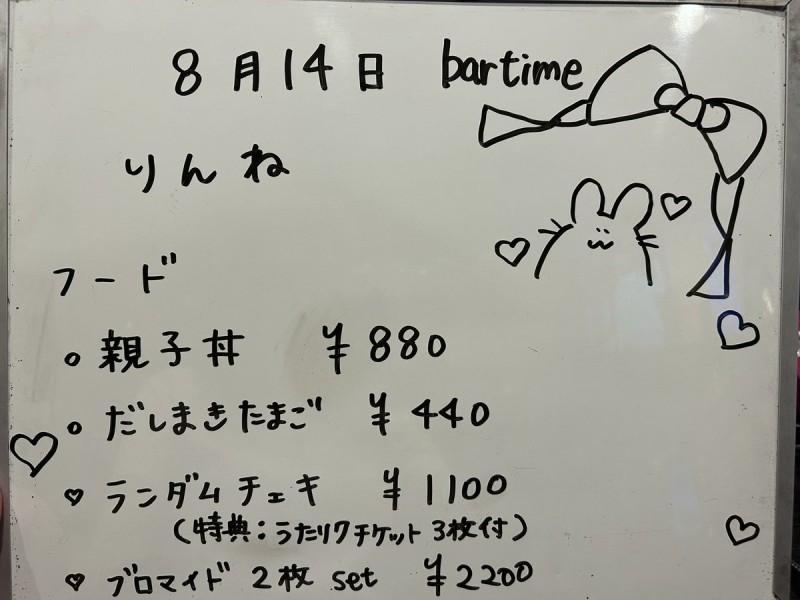 8月14日 bartime
りんね
フード
○ 親子丼 ¥880
○ だしまきたまご ¥440
♡ ランダムチェキ ¥1100
（特典：うたリクチケット 3枚付）
♡ ブロマイド 2枚 set ¥2200